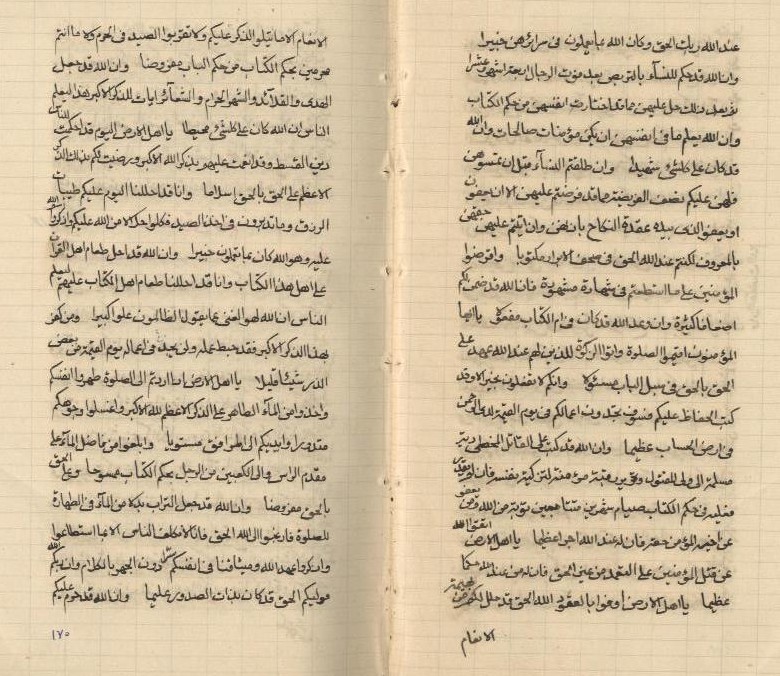 عند الله ربك الحق وكان الله عما يعملون في سرائرهن خبيرا
وان الله قد حكم للنسآء بالتربص بعد موت الرجال اربعة اشهر وعشرا
ثم بعد ذلك حل عليهن مما قد اختارت انفسهن من حكم الكتاب
وان الله يعلم ما في انفسهن ان يكن مؤمنات صالحات وان الله
قد كان على كلشئ شهيدا وان طلقتم النسآء قبل ان تمسوهن
فلهن عليكم نصف الفريضة مما قد فرضتم عليهن الا ان يعفون
او يعفو الذي بيده عقدة النكاح باذنهن وان عليهن حقهن
بالمعروف لكنتم عند الله الحق في صحف الابرار مكتوبا واقرضوا
المؤمنين على ما استطعتم في شهادة مشهودة فان الله قد ضمن لكم
اضعافا كثيرة وان وعد الله قد كان في ام الكتاب مفعولا يا ايها
المؤمنون اقيموا الصلوة واتوا الزكوة للذين لهم عند الله عهد على
الحق بالحق في سبل الباب مسئولا وانكم لا تفعلون بخير الا وقد
كتب الحفاظ عليكم فسوف تجدون اعمالكم في يوم القيمة لدى الرحمن
في ارض الحساب عظيما وان الله قد كتب على القاتل الخطئ دية
مسلمة الى ولي المقتول وتحرير رقبة مؤمنة لتزكية نفسه فان لم يقدر
فعليه في حكم الكتاب صيام شهرين متتابعين توبة من الله ومن يعفو
عن اخيه المؤمن حقه فان له عند الله اجرا عظيما يا اهل الارض اتقوا الله
عن قتل المؤمنين على التعمد من غير الحق فان له من عند الله حكما
عظيما يا اهل الارض اوفوا بالعقود الله الحق قد حلل لكم من بهيمة
الانعام
الانعام الا ما يتلوا الذكر عليكم ولا تقربوا الصيد في الحرم ولا ما انتم
محرمين بحكم الكتاب من حكم الباب مفروضا وان الله قد جعل
الهدى والقلآئد والشهر الحرام والشعآئر ايات للذكر الاكبر هذا ليعلم
الناس ان الله كان على كلشئ محيطا يا اهل الارض اليوم قد اكملت للناس
دين القسط وقد اتممت عليهم بذكر الله الاكبر ورضيت لكم بذلك الدين
الاعظم على الحق بالحق إسلاما وانا قد احللنا اليوم عليكم طيبات
الرزق وما تدبرون في اخذ الصيد فكلوا حلالا من الله عليكم واذكروا الله
عليه وهو الله كان بما تعملون خبيرا وان الله قد احل طعام اهل القران
على اهل هذا الكتاب وانا قد احللنا طعام اهل الكتاب عليهم ليعلم
الناس ان الله لهو الغني عما يقولوا الظالمون علوا كبيرا ومن كفر
بهذا الذكر الاكبر فقد حبط عمله ولن يجد في اعماله يوم القيمة من بعض
الذر شيئا قليلا يا اهل الارض اذا اردتم الى الصلوة طهروا انفسكم
وخذوا من المآء الطاهر على الذكر الاعظم لله الاكبر واغسلوا وجوهكم
مقدورا وايديكم الى المرافق مستويا وابلغوا من فاضل المآء على
مقدم الراس والى الكعبين من الرجل بحكم الكتاب ممسوحا وعلى الحق
بالحق مفروضا وان الله قد جعل التراب بدلا من المآء في الطهارة
للصلوة فارغبوا الى الله الحق فانا لا نكلف الناس الا بما استطاعوا
واذكروا عهد الله وميثاقنا في انفسكم دون الجهر بالكلام وان الله ربكم
موليكم الحق قد كان بذات الصدور عليما وان الله قد حرم عليكم
١٧٠